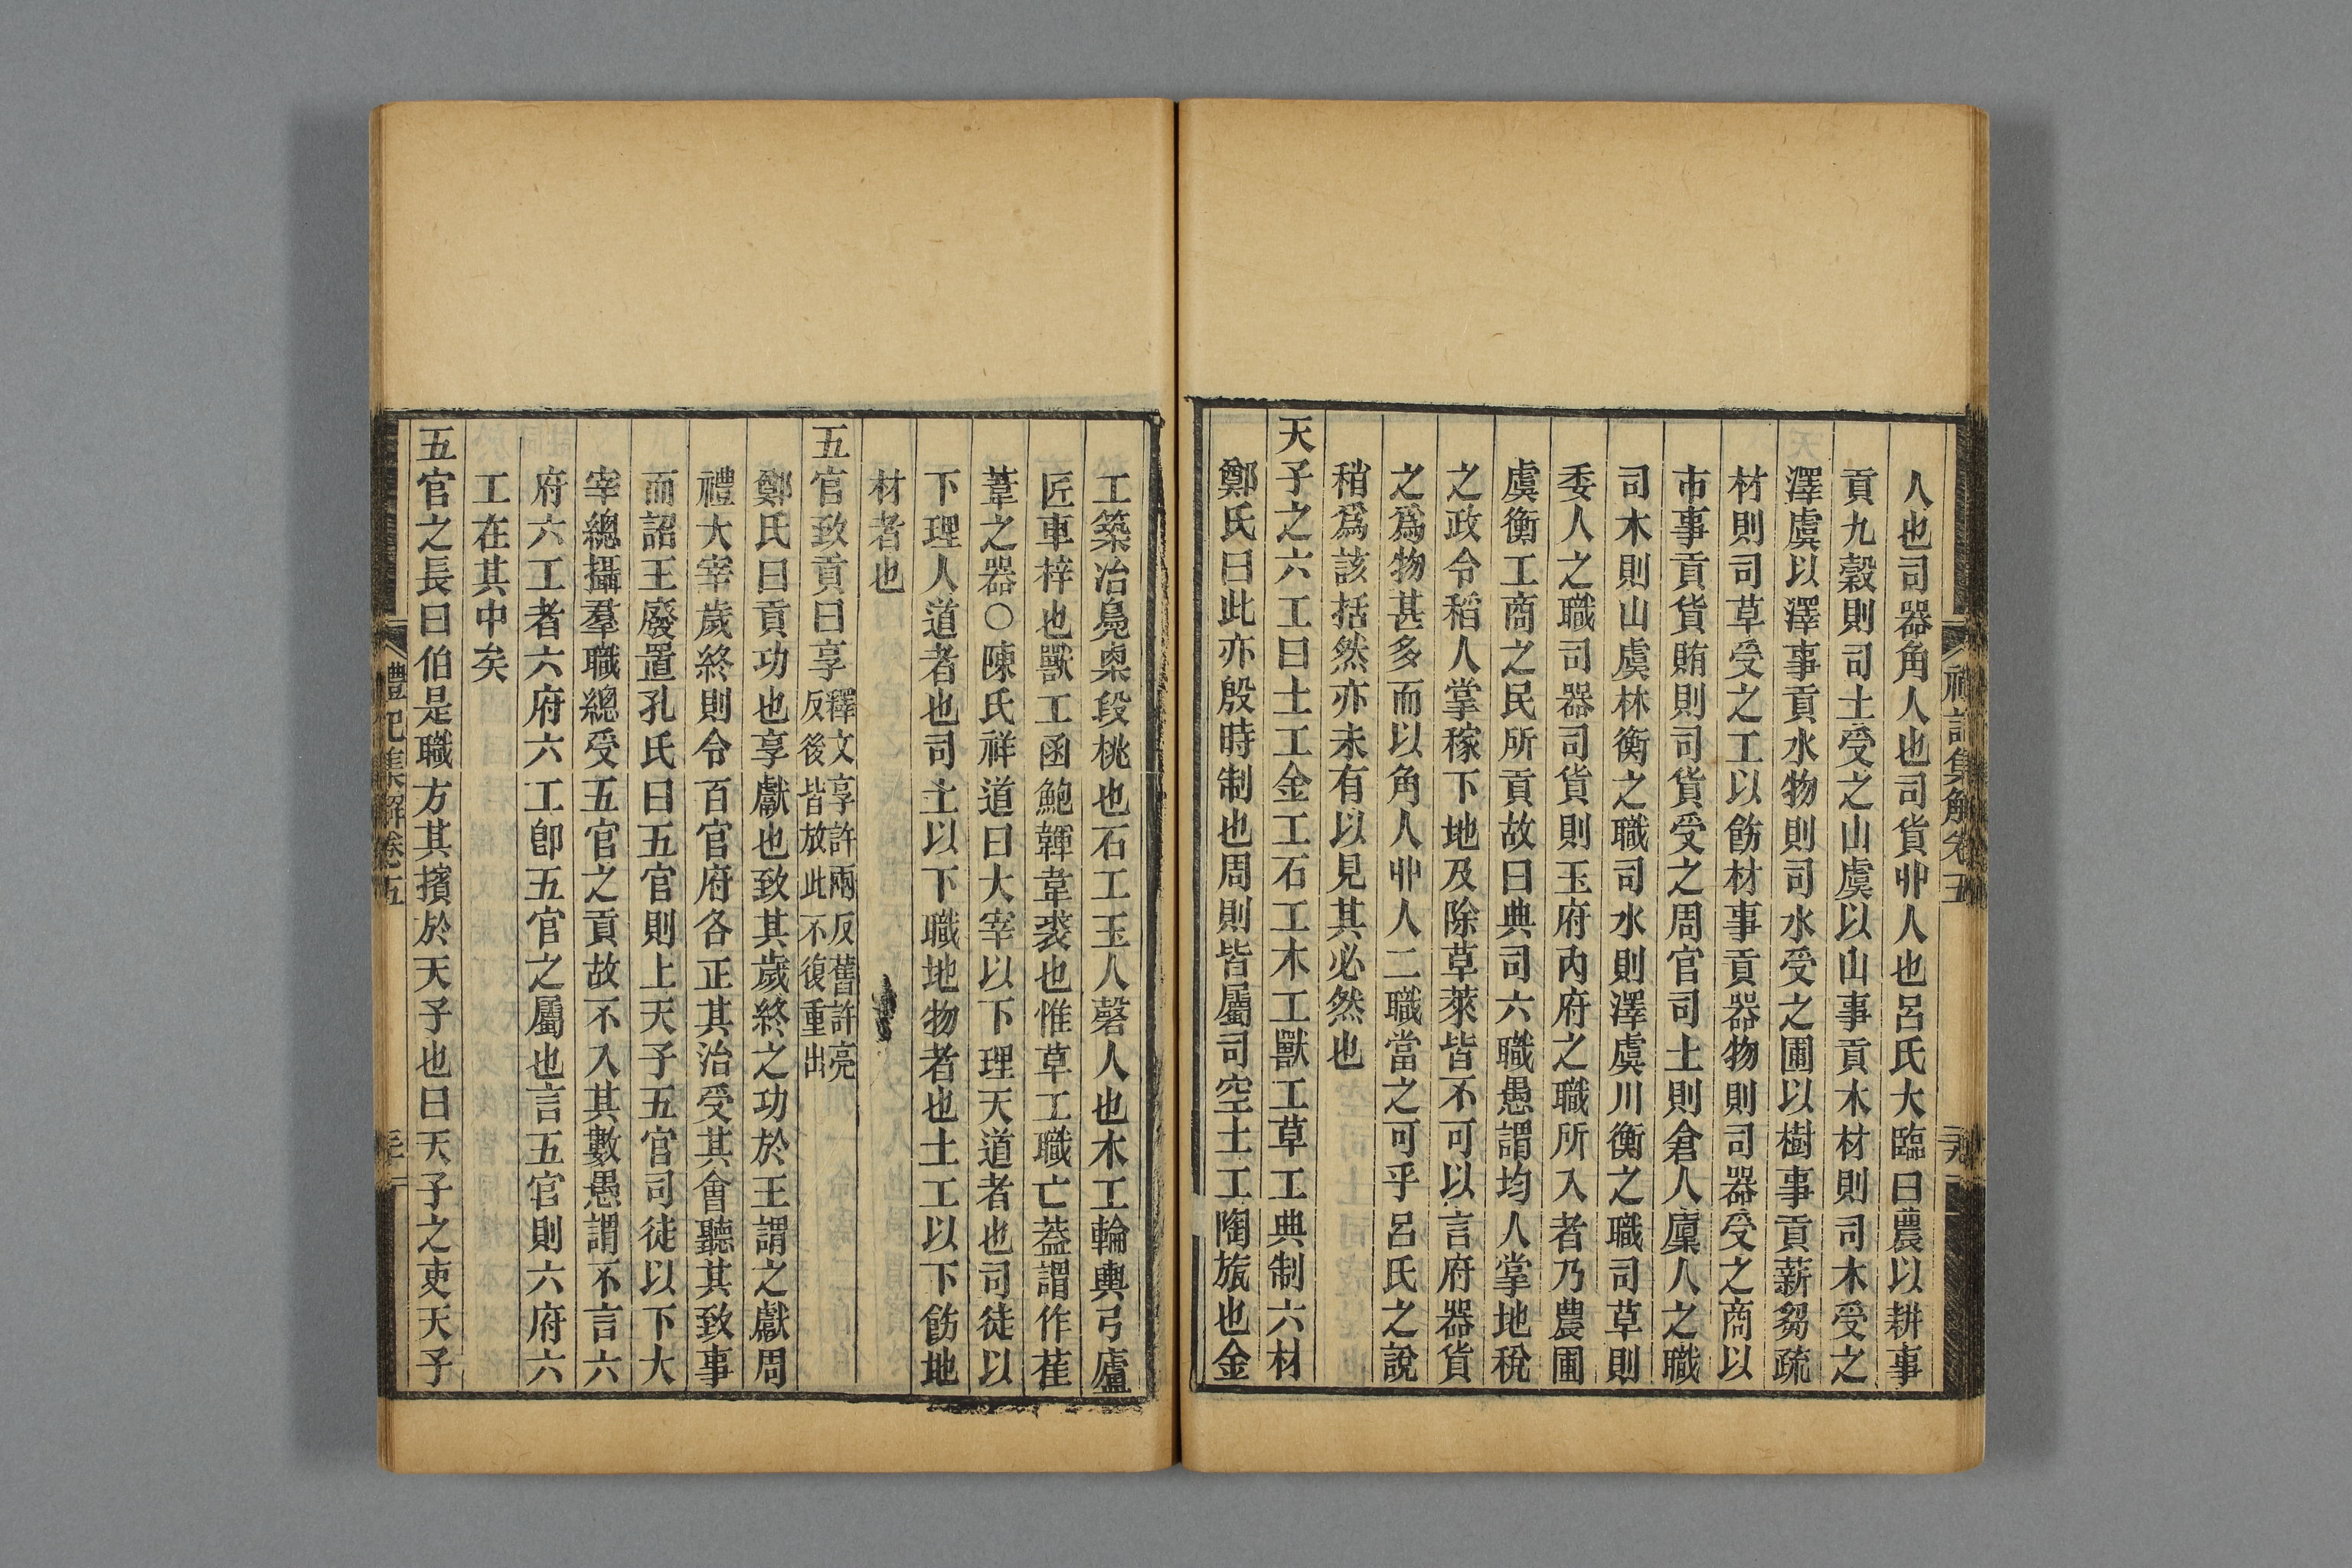 禮記集解卷五
人也司器角人也司貨丱人也呂氏大臨曰農以耕事
貢九穀則司土受之山虞以山事貢木材則司木受之
澤虞以澤事貢水物則司水受之圃以樹事貢薪芻疏
材則司草受之工以飭材事貢器物則司器受之商以
市事貢貨賄則司貨受之周官司土則倉人廩人之職
司木則山虞林衡之職司水則澤虞川衡之職司草則
委人之職司器司貨則玉府內府之職所入者乃農圃
虞衡工商之民所貢故曰典司六職愚謂均人掌地稅
之政令稻人掌稼下地及除草萊皆不可以言府器貨
之爲物甚多而以角人丱人二職當之可乎呂氏之說
稍爲該括然亦未有以見其必然也
天子之六工曰土工金工石工木工獸工草工典制六材
鄭氏曰此亦殷時制也周則皆屬司空土工陶旊也金
工築冶鳧㮚段桃也石工玉人磬人也木工輪輿弓廬
匠車梓也獸工函鮑韗韋裘也惟草工職亡葢謂作萑
葦之器○陳氏祥道曰大宰以下理天道者也司徒以
下理人道者也司土以下職地物者也土工以下飭地
材者也
五官致貢曰享釋文享許兩反舊許亮
反後皆放此不復重出
鄭氏曰貢功也享獻也致其歲終之功於王謂之獻周
禮大宰歲終則令百官府各正其治受其會聽其致事
而詔王廢置孔氏曰五官則上天子五官司徒以下大
宰總攝羣職總受五官之貢故不入其數愚謂不言六
府六工者六府六工卽五官之屬也言五官則六府六
工在其中矣
五官之長曰伯是職方其擯於天子也曰天子之吏天子
禮記集解卷五